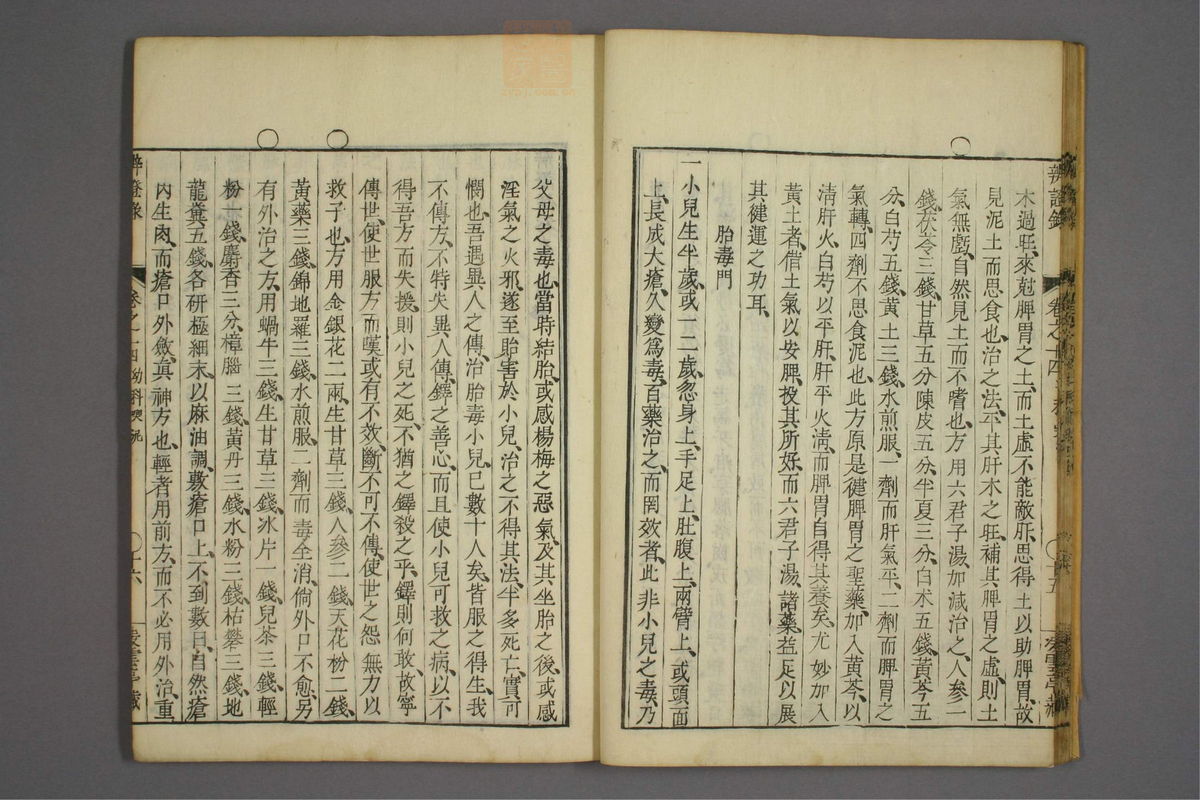 木過旺、來尅脾胃之土、而土虛不能敵肝、思得土以助脾胃、故
見泥土而思食也、治之法、平其肝木之旺、補其脾胃之虛、則土
氣無虧、自然見土而不嗜也、方用六君子湯加減治之、人參一
錢、茯苓三錢、甘草五分、陳皮五分、半夏三分、白朮五錢、黃芩五
分、白芍五錢、黃土三錢、水煎服、一劑而肝氣平、二劑而脾胃之
氣轉、四劑不思食泥也、此方原是健脾胃之聖藥、加入黃芩、以
清肝火、白芍以平肝、肝平火清、而脾胃自得其養矣、尤妙加入
黃土者、借土氣以安脾、投其所好、而六君子湯、諸藥益足以展
其健運之功耳、
胎毒門
一小兒生半歲、或一二歲、忽身上、手足上、肚腹上、兩臂上、或頭面
上、長成大瘡、久變爲毒、百藥治之、而罔效者、此非小兒之毒、乃
辨證錄
卷之十四
十五
父母之毒也、當時結胎、或感楊梅之惡氣、及其坐胎之後、或感
淫氣之火邪、遂至貽害於小兒、治之不得其法、半多死亡、實可
憫也、吾遇異人之傳、治胎毒小兒、已數十人矣、皆服之得生、我
不傳方、不特失異人傳鐸之善心、而且使小兒可救之病、以不
得吾方而失援、則小兒之死、不猶之鐸殺之乎、鐸則何敢、故寧
傳世、使世服方而嘆或有不效、斷不可不傳、使世之怨無力以
救子也、方用金銀花二兩、生甘草三錢、人參二錢、天花粉二錢、
黃藥三錢、錦地羅三錢、水煎服、二劑而毒全消、倘外口不愈、另
有外治之方、用蝸牛三錢、生甘草三錢、冰片一錢、兒茶三錢、輕
粉一錢、麝香三分、樟腦三錢、黃丹三錢、水粉三錢、枯礬三錢、地
龍糞五錢、各研極細末、以麻油調敷瘡口上、不到數日、自然瘡
內生肉、而瘡口外斂、眞神方也、輕者用前方、而不必用外治、重
辨證錄
卷之十四幼科
十六